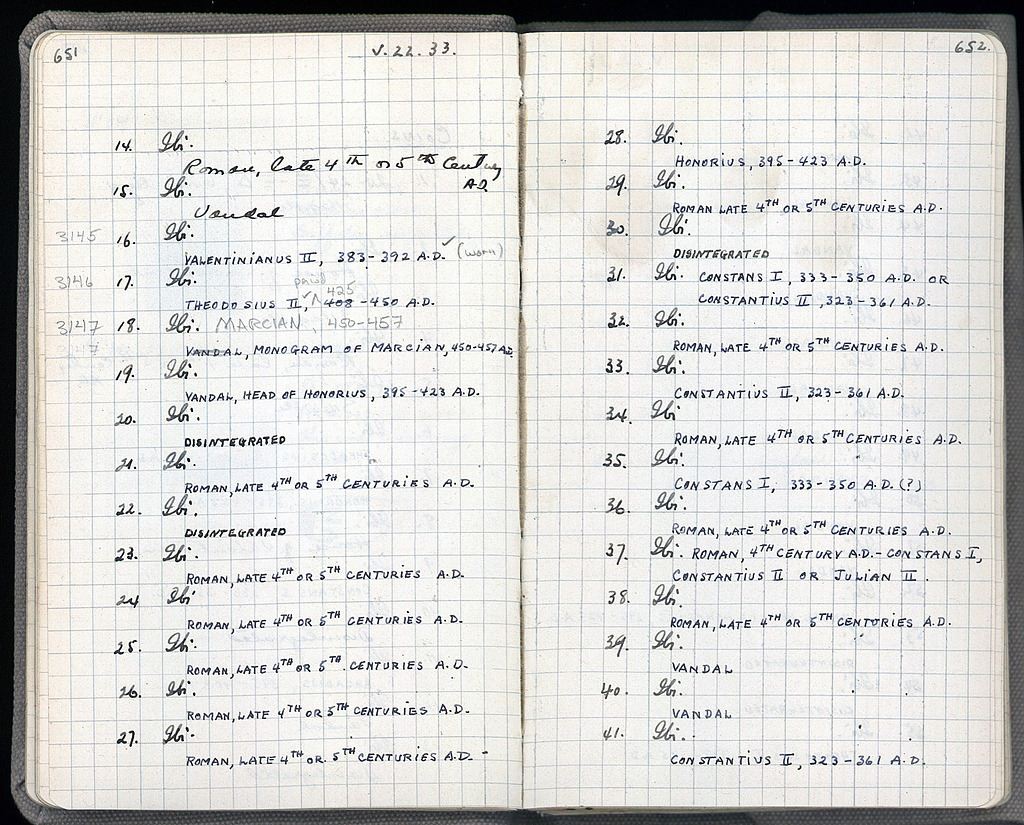 651
V. 22. 33.
14. Ibi.
Roman, late 4TH or 5TH Century
A.D.
15. Ibi.
Vandal
3145 16. Ibi.
VALENTINIANUS II, 383-392 A.D. ✓ (worn)
3146 17. Ibi.
425
THEODOSIUS II, 408-450 A.D.
3147 18. Ibi. MARCIAN, 450-457
VANDAL, MONOGRAM OF MARCIAN, 450-457 A.D.
19. Ibi.
VANDAL, HEAD OF HONORIUS, 395-423 A.D.
20. Ibi.
DISINTEGRATED
21. Ibi.
ROMAN, LATE 4TH OR 5TH CENTURIES A.D.
22. Ibi.
DISINTEGRATED
23. Ibi.
ROMAN, LATE 4TH OR 5TH CENTURIES A.D.
24 Ibi
ROMAN, LATE 4TH OR 5TH CENTURIES A.D.
25. Ibi.
ROMAN, LATE 4TH OR 5TH. CENTURIES A.D.
26. Ibi.
ROMAN, LATE 4TH OR 5TH CENTURIES A.D.
27. Ibi.
ROMAN, LATE 4TH OR. 5TH CENTURIES A.D. -
652.
28. Ibi.
HONORIUS, 395-423 A.D.
29. Ibi.
ROMAN LATE 4TH OR 5TH CENTURIES A.D.
30. Ibi.
DISINTEGRATED
31. Ibi. CONSTANS I, 333-350 A.D. OR
CONSTANTIUS II, 323-361 A.D.
32. Ibi.
ROMAN, LATE 4TH OR 5TH CENTURIES A.D.
33. Ibi.
CONSTANTIUS II, 323-361 A.D.
34. Ibi
ROMAN, LATE 4TH OR 5TH CENTURIES A.D.
35. Ibi.
CONSTANS I, 333-350 A.D. (?)
36. Ibi.
ROMAN, LATE 4TH OR 5TH CENTURIES A.D.
37. Ibi. ROMAN, 4TH CENTURY A.D. - CONSTANS I,
CONSTANTIUS II OR JULIAN II.
38. Ibi.
ROMAN, LATE 4TH OR 5TH CENTURIES A.D.
39. Ibi.
VANDAL
40. Ibi.
VANDAL
41. Ibi.
CONSTANTIUS II, 323-361 A.D.